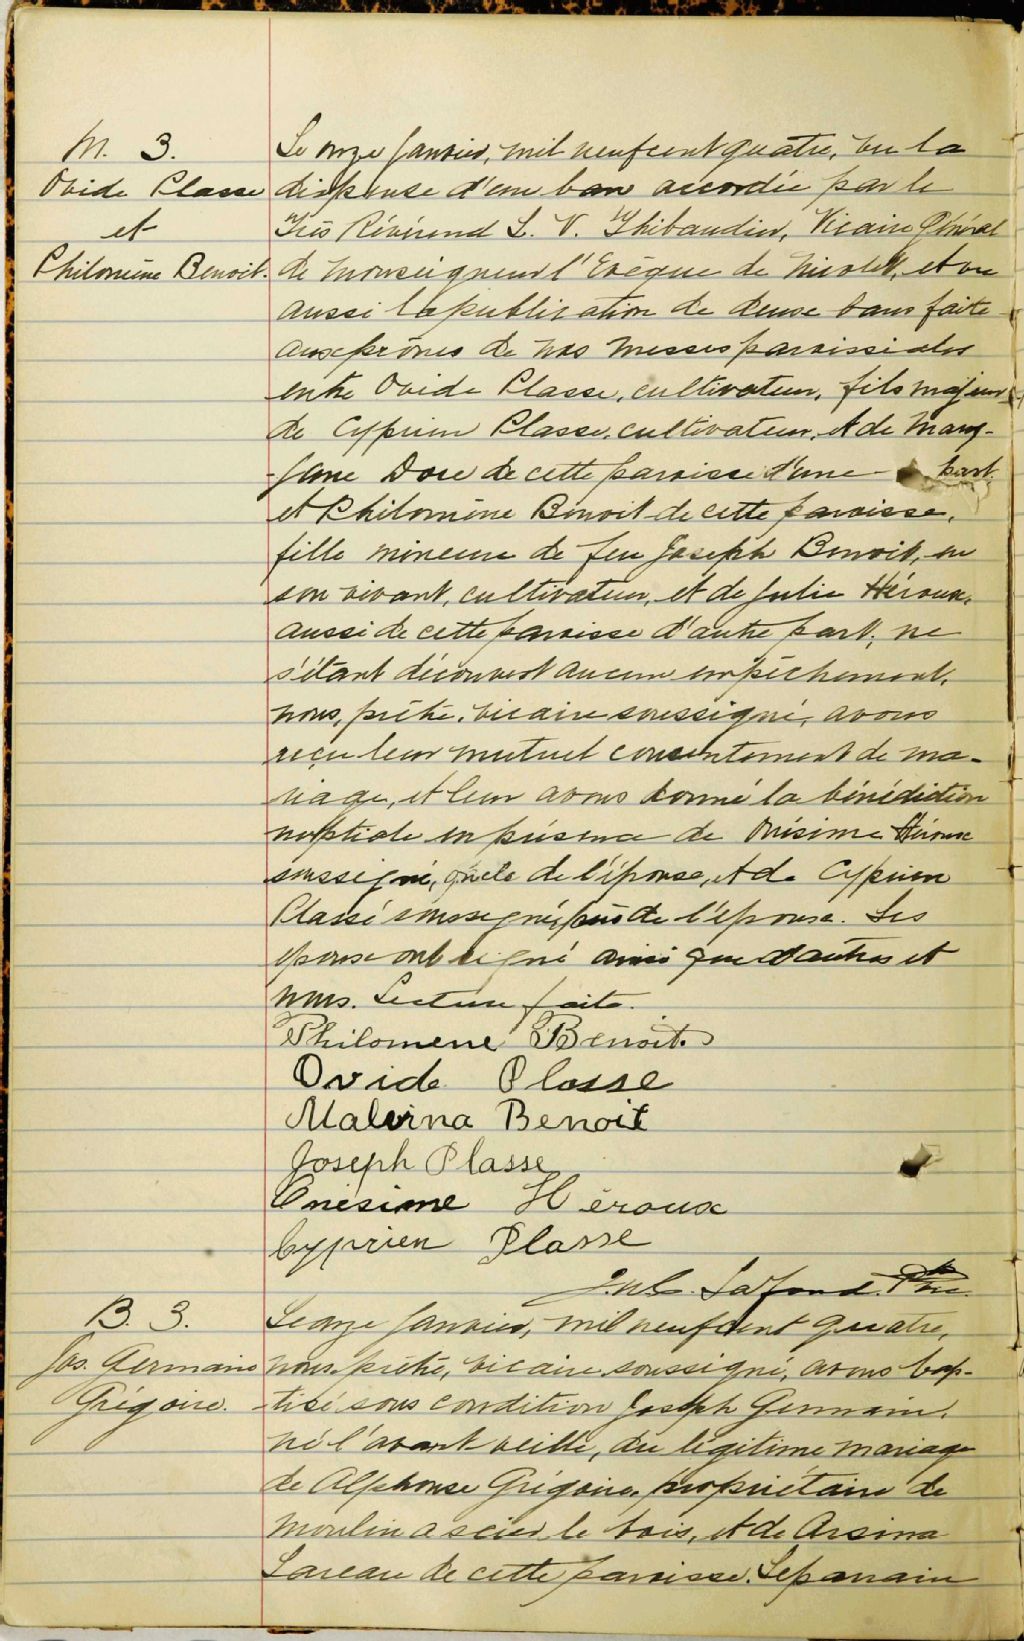 M. 3.
Ovide Plasse
et
Philomène Benoit.
Le onze Janvier, mil neuf cent quatre, vu la
dispense d'un ban accordée par le
Très Révérend S. V. Thibaudier, Vicaire Général
de Monseigneur l'Evêque de Nicolet, et vu
aussi la publication de deux bans faite
aux prônes de nos messes paroissiales
entre Ovide Plasse, cultivateur, fils majeur
de Cyprien Plasse, cultivateur, et de Mary-
-Jane Dore de cette paroisse d'une part.
et Philomène Benoit de cette paroisse,
fille mineure de feu Joseph Benoit, en
son vivant, cultivateur, et de Julie Héroux,
aussi de cette paroisse d'autre part; ne
s'étant découvert aucun empêchement,
nous, prêtre, vicaire soussigné, avons
reçu leur mutuel consentement de ma-
riage, et leur avons donné la bénédiction
nuptiale en présence de Onésime Héroux
soussigné, de l'épouse, et de Cyprien
Plassé soussigné, père de l'épouse. Les
époux ont signé ainsi que d'autres et
nous. Lecture faite.
Philomene Benoit
Ovide Plasse
Malvina Benoit
Joseph Plasse
Onésime Héroux
Cyprien Plasse
J. N. C. Lafond. Ptre.
B. 3.
Jos. Germain
Grégoire.
Le onze Janvier, mil neuf cent quatre,
nous, prêtre, vicaire soussigné, avons bap-
-tisé sous condition Joseph Germain,
né l'avant veille, du légitime mariage
de Alphonse Grégoire, propriétaire de
moulin a scier le bois, et de Arsina
Lareau de cette paroisse. Le parrain